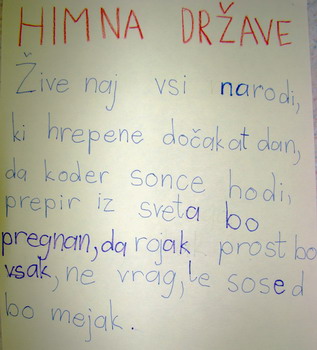 HIMNA DRŽAVE
Žive naj vsi narodi,
ki hrepene dočakat dan,
da koder sonce hodi,
prepir iz sveta bo
pregnan, da rojak prost bo
vsak, ne vrag, le sosed
bo mejak.